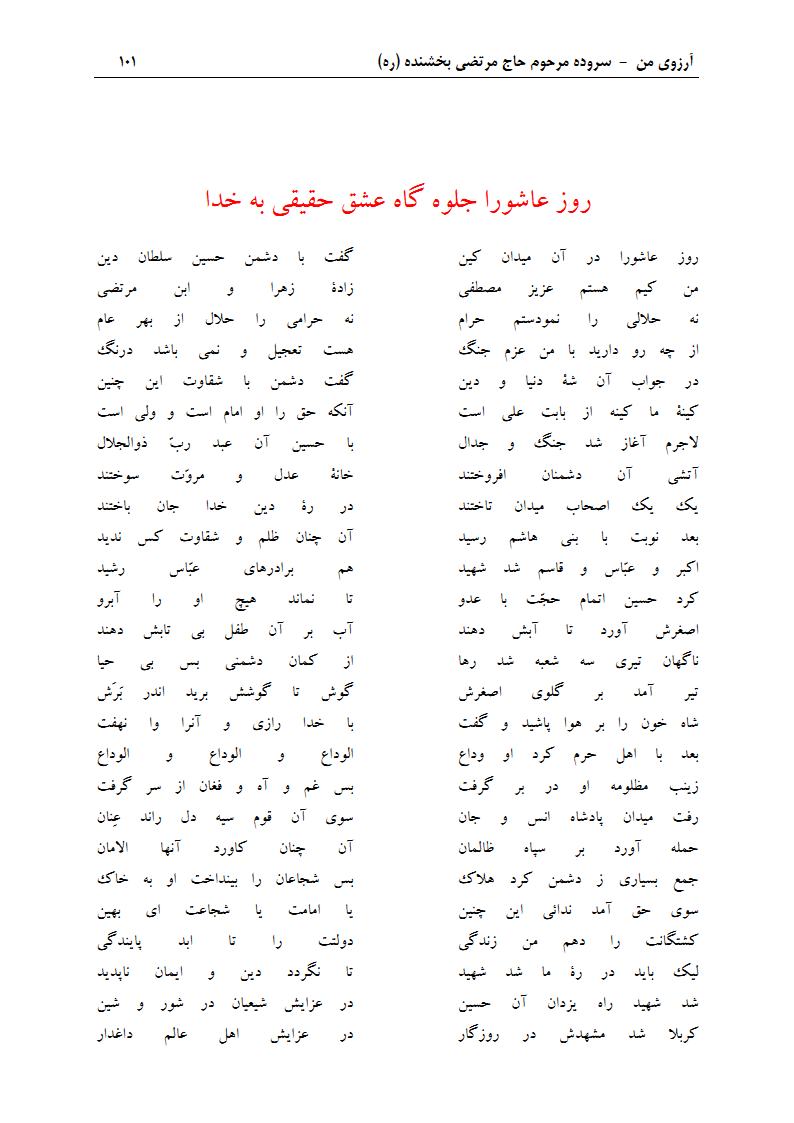 آرزوی من - سروده مرحوم حاج مرتضی بخشنده (ره) ۱۰۱
روز عاشورا جلوه گاه عشق حقیقی به خدا
روز عاشورا در آن میدان کین گفت با دشمن حسین سلطان دین
من کیم هستم عزیز مصطفی زادۀ زهرا و ابن مرتضی
نه حلالی را نمودستم حرام نه حرامی را حلال از بهر عام
از چه رو دارید با من عزم جنگ هست تعجیل و نمی باشد درنگ
در جواب آن شۀ دنیا و دین گفت دشمن با شقاوت این چنین
کینۀ ما کینه از بابت علی است آنکه حق را او امام است و ولی است
لاجرم آغاز شد جنگ و جدال با حسین آن عبد ربّ ذوالجلال
آتشی آن دشمنان افروختند خانۀ عدل و مروّت سوختند
یک یک اصحاب میدان تاختند در رۀ دین خدا جان باختند
بعد نوبت با بنی هاشم رسید آن چنان ظلم و شقاوت کس ندید
اکبر و عبّاس و قاسم شد شهید هم برادرهای عبّاس رشید
کرد حسین اتمام حجّت با عدو تا نماند هیچ او را آبرو
اصغرش آورد تا آبش دهند آب بر آن طفل بی تابش دهند
ناگهان تیری سه شعبه شد رها از کمان دشمنی بس بی حیا
تیر آمد بر گلوی اصغرش گوش تا گوشش برید اندر بَرَش
شاه خون را بر هوا پاشید و گفت با خدا رازی و آنرا وا نهفت
بعد با اهل حرم کرد او وداع الوداع و الوداع و الوداع
زینب مظلومه او در بر گرفت بس غم و آه و فغان از سر گرفت
رفت میدان پادشاه انس و جان سوی آن قوم سیه دل راند عِنان
حمله آورد بر سپاه ظالمان آن چنان کاورد آنها الامان
جمع بسیاری ز دشمن کرد هلاک بس شجاعان را بینداخت او به خاک
سوی حق آمد ندائی این چنین یا امامت یا شجاعت ای بهین
کشتگانت را دهم من زندگی دولتت را تا ابد پایندگی
لیک باید در رۀ ما شد شهید تا نگردد دین و ایمان ناپدید
شد شهید راه یزدان آن حسین در عزایش شیعیان در شور و شین
کربلا شد مشهدش در روزگار در عزایش اهل عالم داغدار